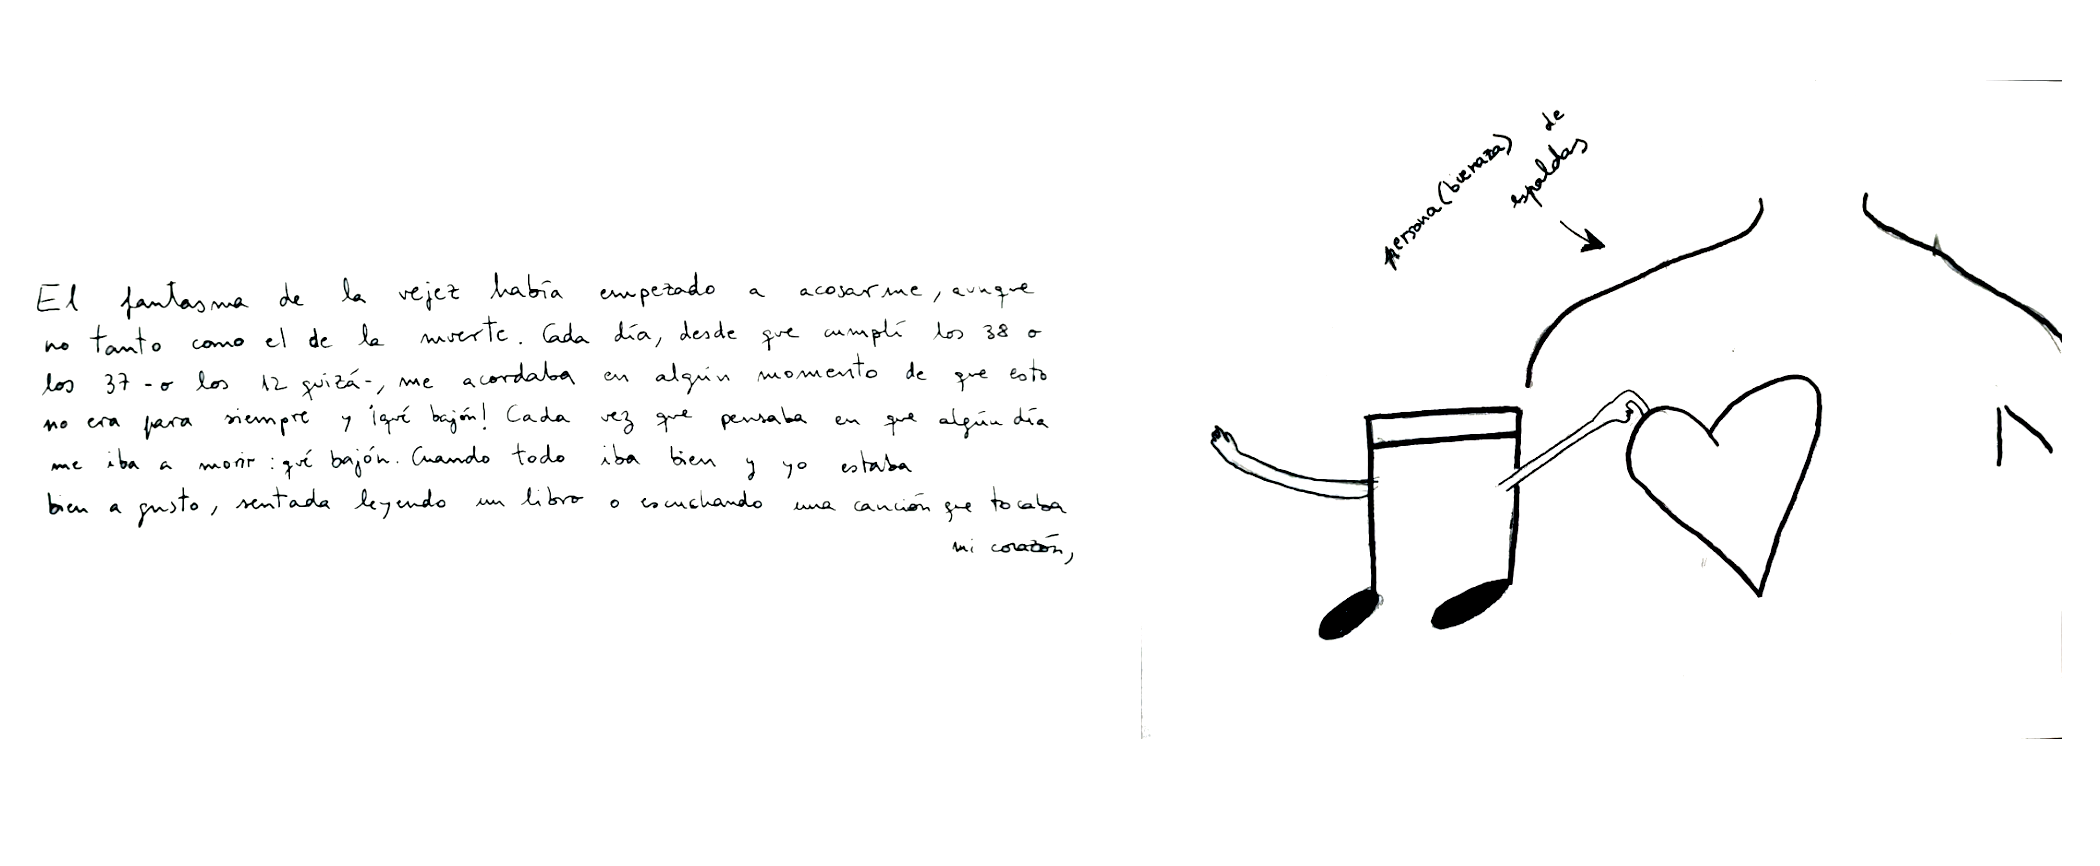 El fantasma de la vejez había empezado a acosarme, aunque
no tanto como el de la muerte. Cada día, desde que cumplí los 38 o
los 37 - o los 12 quizá -, me acordaba en algún momento de que esto
no era para siempre y ¡qué bajón! Cada vez que pensaba en que algún día
me iba a morir: qué bajón. Cuando todo iba bien y yo estaba
bien a gusto, sentada leyendo un libro o escuchando una canción que tocaba
mi corazón,
persona de
espaldas